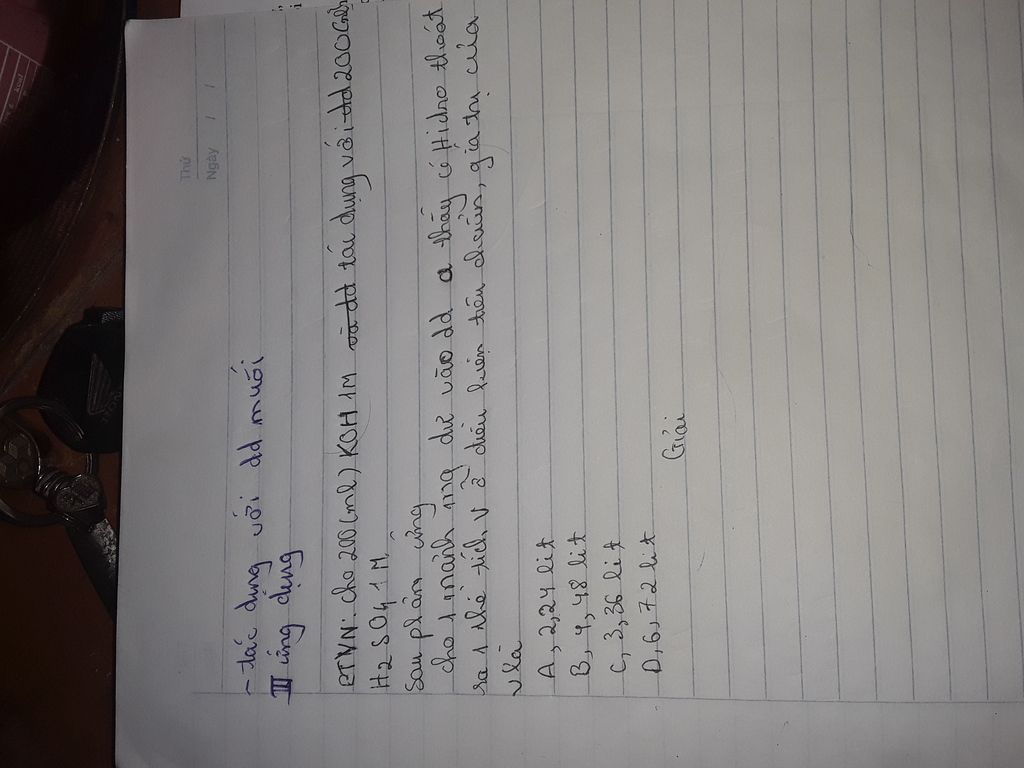 Thứ
Ngày / /
- tác dụng với dd muối
III ứng dụng
BTVN: cho 200(ml) KOH 1M và dd tác dụng với dd 200(ml)
H2 SO4 1M
Sau phản ứng
cho 1 mảnh mg dư vào dd a thấy có Hidro thoát
ra 1 thể tích V ở điều kiện tiêu chuẩn, giá trị của
V là
A, 2,24 lít
B, 4,48 lít
C, 3,36 lít
D, 6,72 lít
Giải